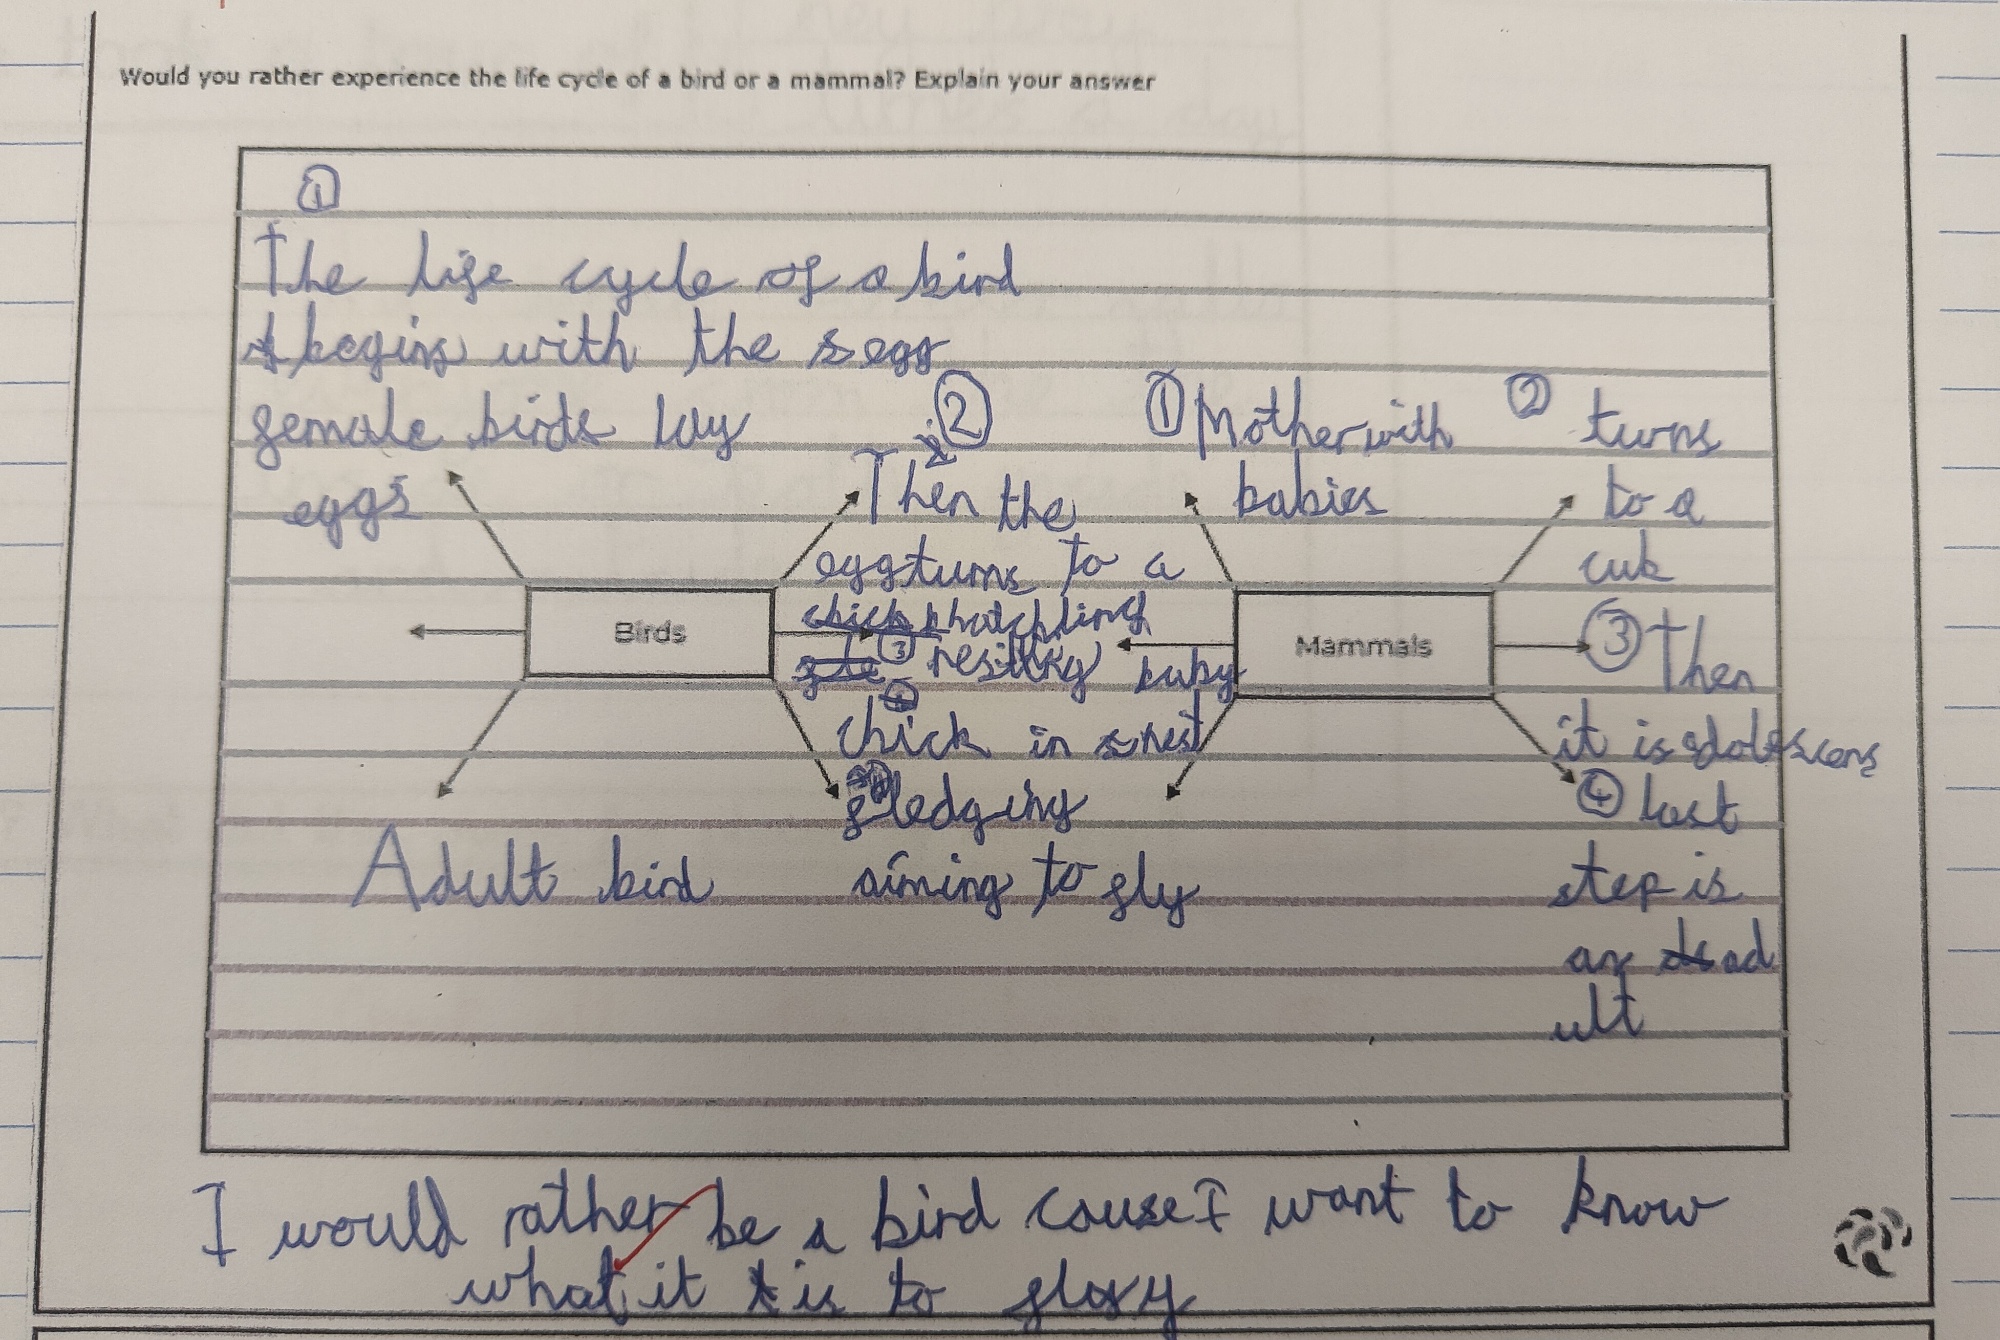 Would you rather experience the life cycle of a bird or a mammal? Explain your answer
①
The life cycle of a bird
begins with the egg
female birds lay
eggs
②
Then the
egg turns to a
hatchling
③
chick in nest
fledging
aiming to fly
Adult bird
Birds
① Mother with
babies
baby
② turns
to a
cub
③ Then
it is adolescens
④ last
step is
an ad
ult
Mammals
I would rather be a bird cause I want to know
what it is to